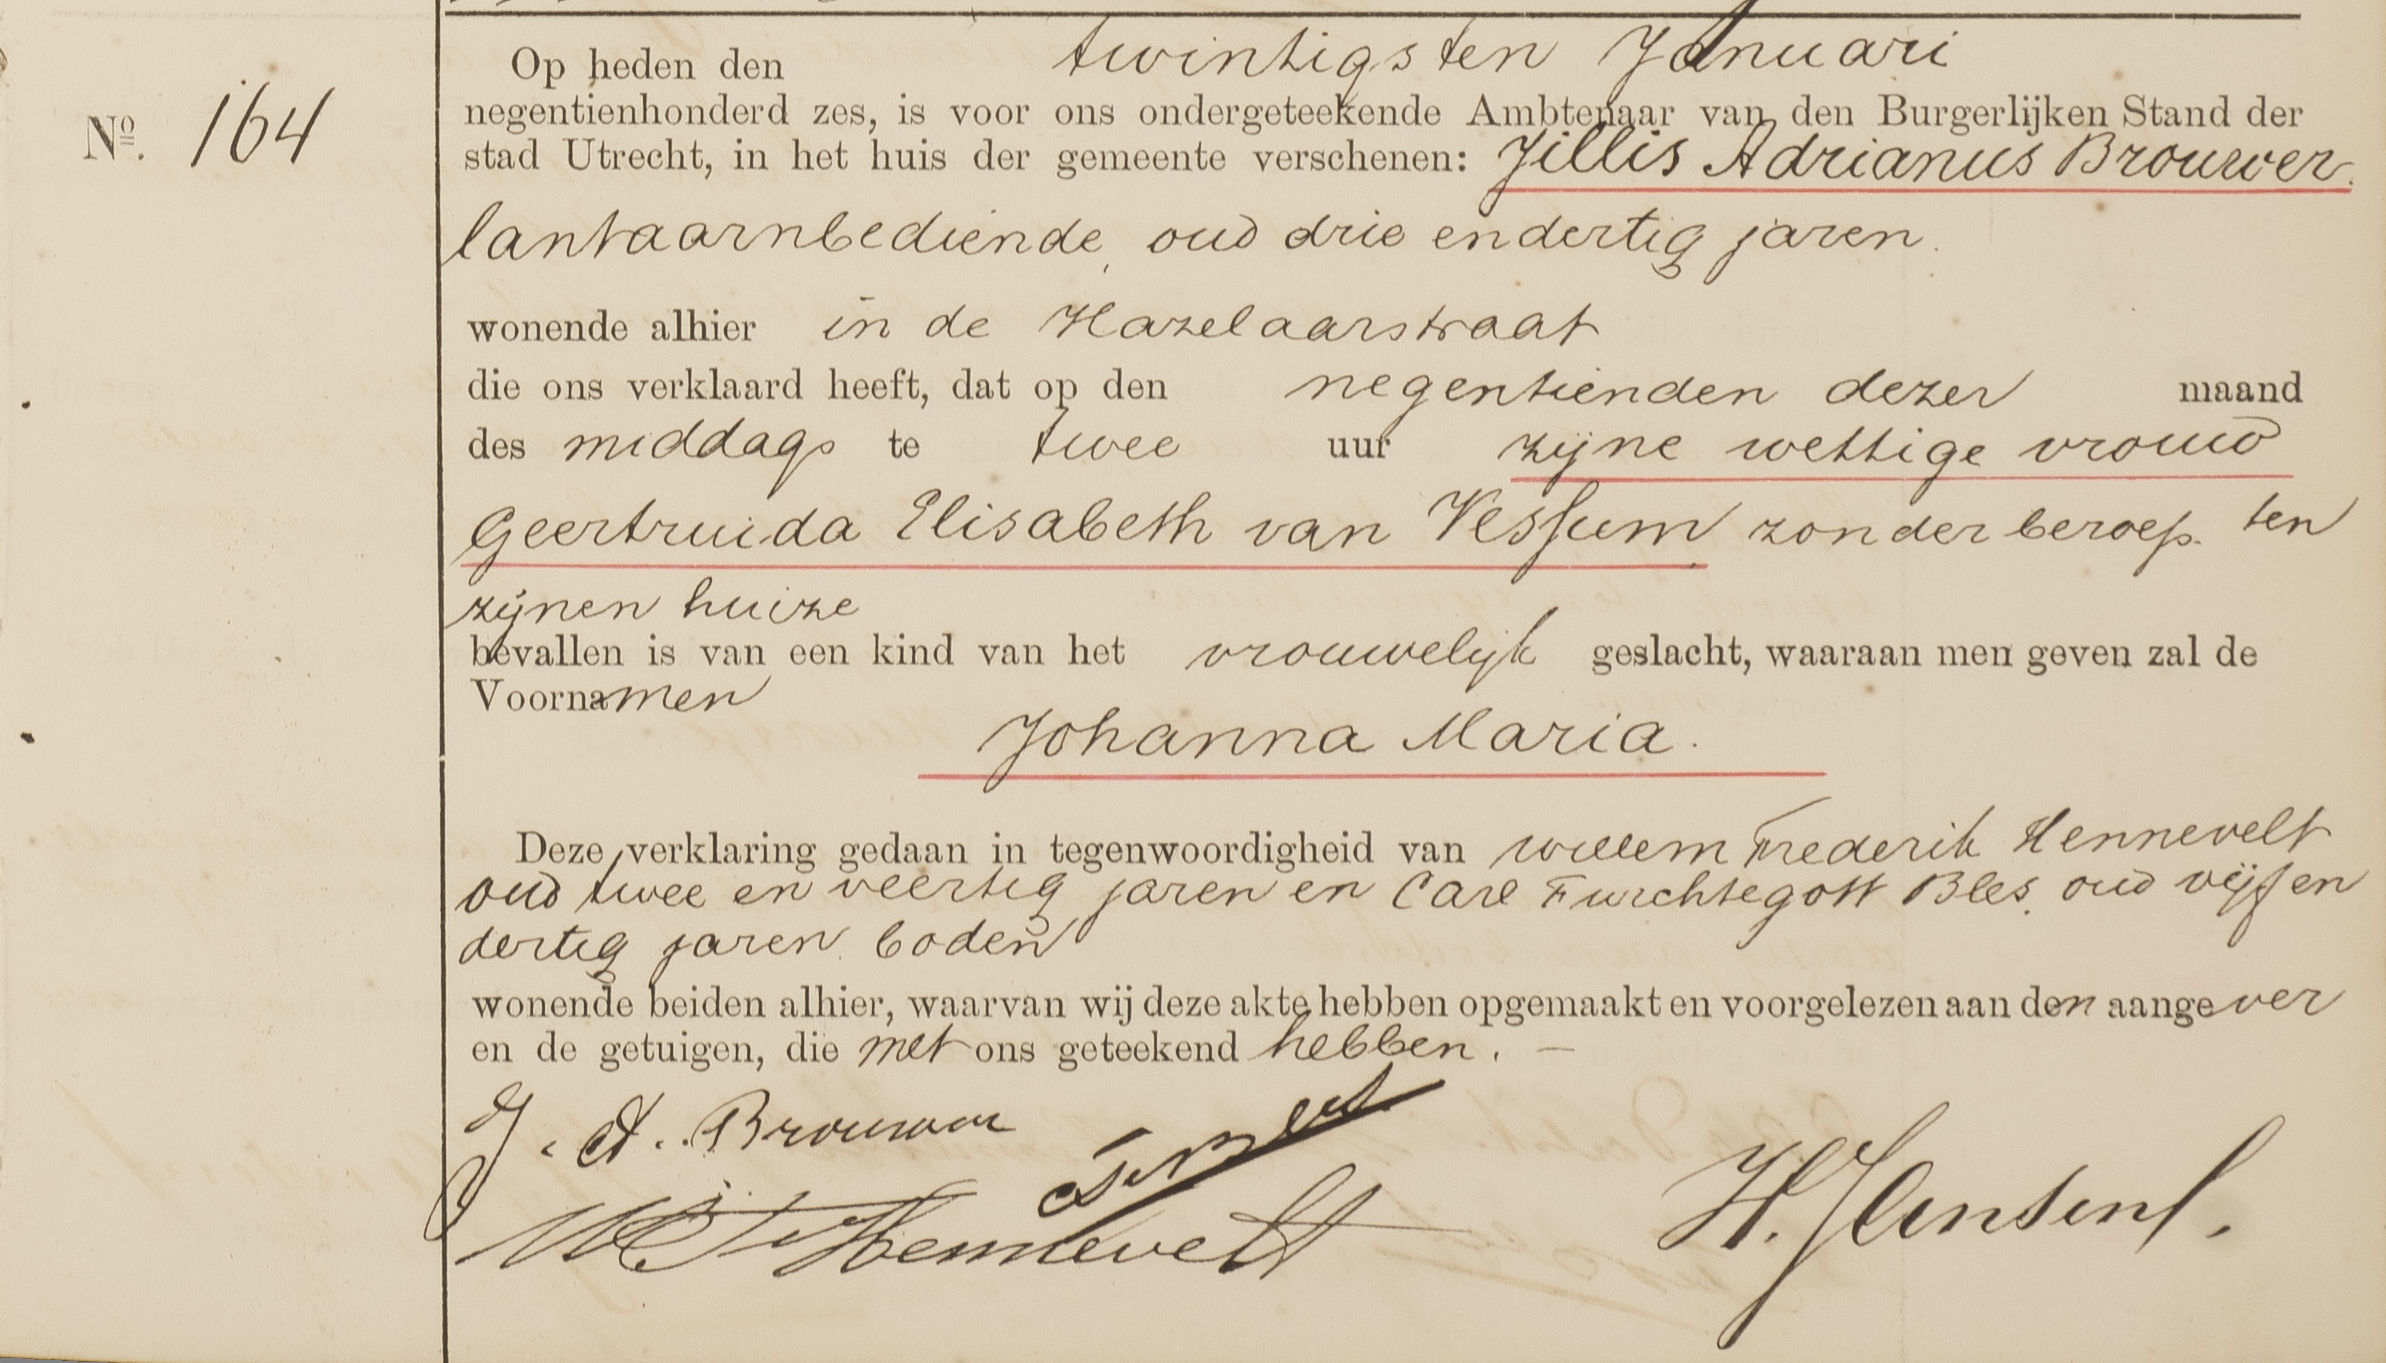 Op heden den twintigsten Januari
No. 164
negentienhonderd zes, is voor ons ondergeteekende Ambtenaar van den Burgerlijken Stand der
stad Utrecht, in het huis der gemeente verschenen: Jillis Adrianus Brouwer.
lantaarnbediende, oud drie en dertig jaren.
wonende alhier in de Hazelaarstraat
die ons verklaard heeft, dat op den negentienden dezer maand
des middags te twee uur zijne wettige vrouw
Geertruida Elisabeth van Vessum zonder beroep. ten
zijnen huize
bevallen is van een kind van het vrouwelijk geslacht, waaraan men geven zal de
Voornamen
Johanna Maria.
Deze verklaring gedaan in tegenwoordigheid van Willem Frederik Hennevelt
oud twee en veertig jaren en Carl Furchtegott Bles, oud vijf en
dertig jaren. boden
wonende beiden alhier, waarvan wij deze akte hebben opgemaakt en voorgelezen aan den aangever
en de getuigen, die met ons geteekend hebben. —
J. A. Brouwer
Hennevelt
H.